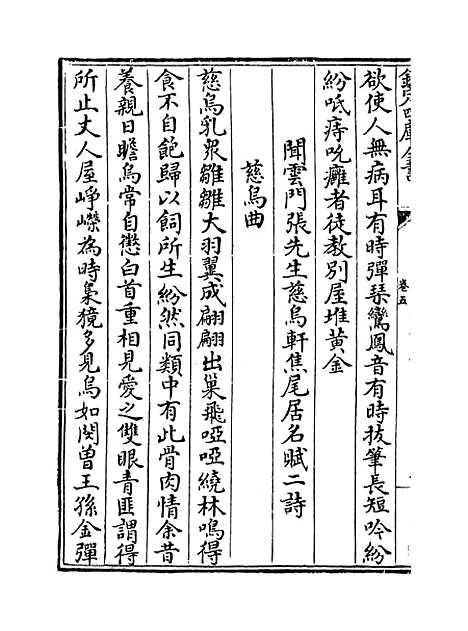 欽定四庫全書
卷五
欲使人無病耳有時彈琴鸞鳳音有時拔筆長短吟紛
紛呧痔吮癰者徒教別屋堆黃金
聞雲門張先生慈烏軒焦尾居名賦二詩
慈烏曲
慈烏乳衆雛雛大羽翼成翩翩出巢飛啞啞繞林鳴得
食不自飽歸以飼所生紛然同類中有此骨肉情余昔
養親日瞻烏常自懲白首重相見愛之雙眼青匪謂得
所止丈人屋崢嶸為時梟獍多見烏如閔曽王孫金彈